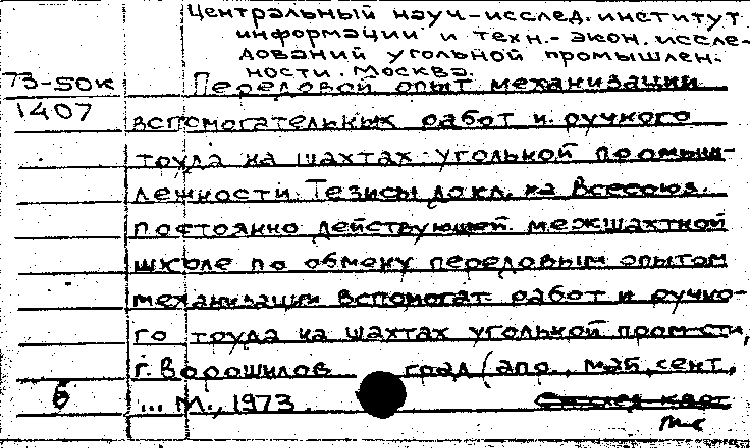 Центральный науч-исслед. институт
информации и техн.- экон. иссле-
дований угольной промышлен-
ности. Москва.
73-50к Передовой опыт механизации
1407 вспомогательных работ и ручного
труда на шахтах угольной промыш-
ленности. Тезисы докл. на Всесоюз.
постоянно действующей межшахтной
школе по обмену передовым опытом
механизации вспомогат. работ и ручно-
го труда на шахтах угольной пром-сти,
г. Ворошилов град (апр., май, сент.,
б ... М., 1973.